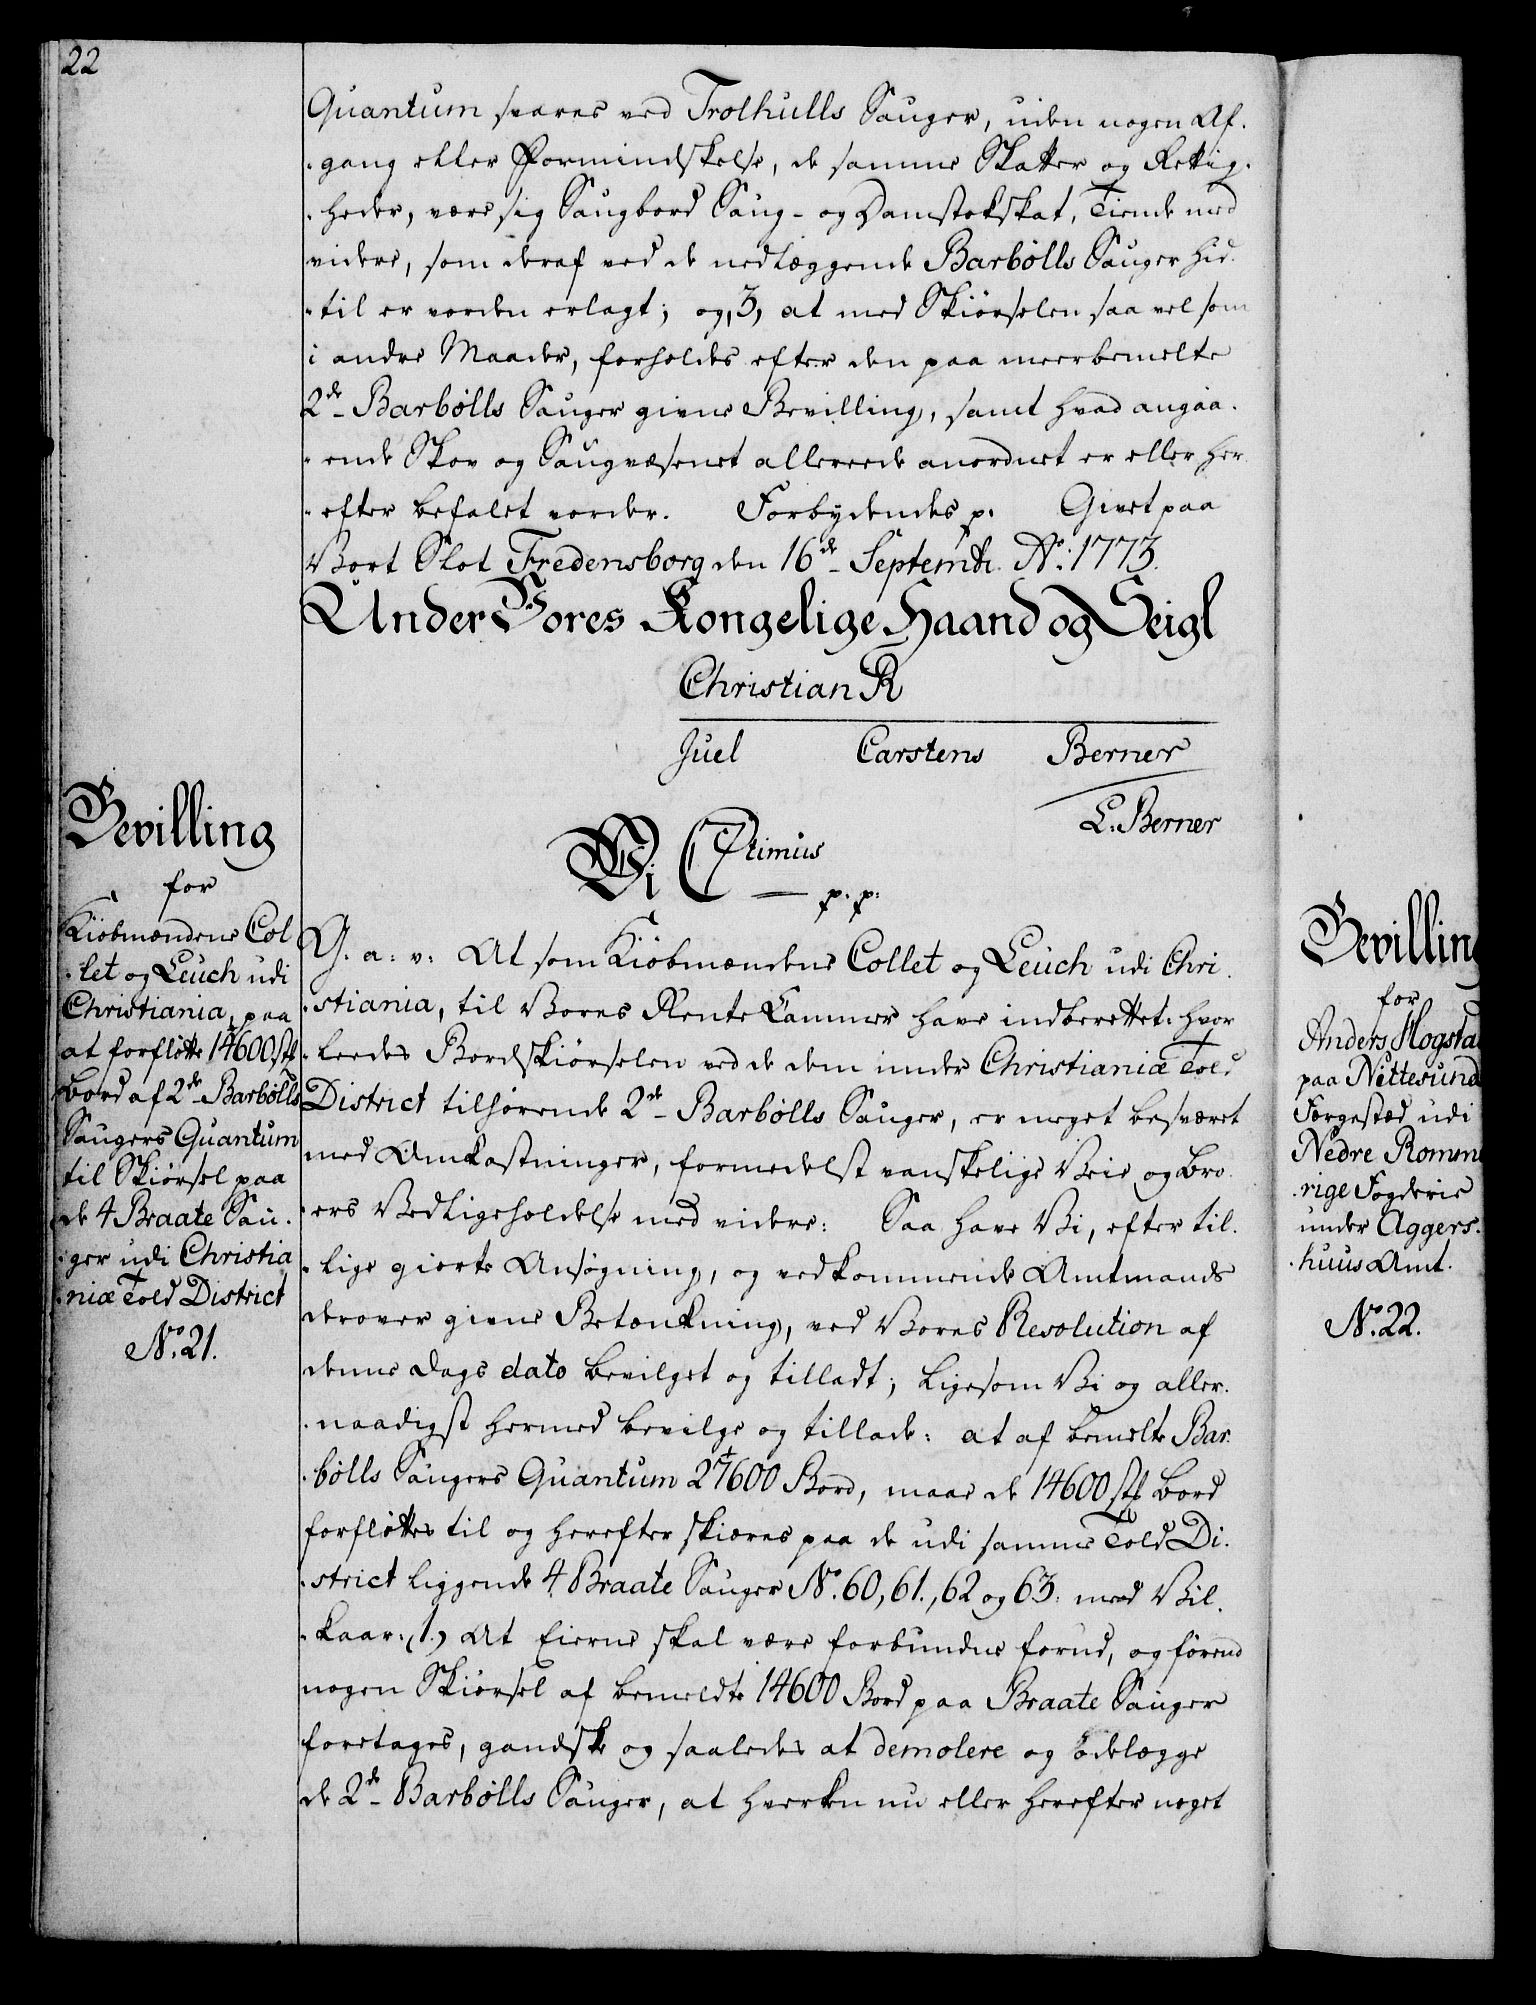 22
Quantum svares ved Trolhulls Sauger, uden nogen Af-
-gang eller Formindskelse, de samme Skatter og Rettig-
-heder, være sig Saugbord Saug- og Damstokskat, Tiende med
videre, som deraf ved de nedlæggende Barbølls Sauger hid-
-til er vorden erlagt; og, 3, at med Skiørselen saa vel som
i andre Maader, forholdes efter den paa meerbemelte
2de Barbølls Sauger givne Bevilling, samt hvad angaa-
-ende Skov og Saugvæsenet allereede anordnet er eller her
-efter befalet vorder. Forbydendes p. Givet paa
Vort Slot Fredensborg den 16de Septembr. Ao: 1773.
Under Vores Kongelige Haand og Seigl
Christian R
Juel Carstens Berner
L. Berner
Bevilling
for
Kiøbmændene Col
-let og Leuch udi
Christiania, paa
at forflötte 14600 st
Bord af 2de Barbølls
Saugers Quantum
til Skiørsel paa
de 4 Braate Sau-
-ger udi Christia
niæ Told District
No. 21.
Vi C 7timus
p. p:
G. a: v: At som Kiöbmændene Collet og Leuch udi Chri-
-stiania, til Vores Rente Kammer have indberettet: hvor
-leedes Bordskiørselen ved de dem under Christianiæ Told
District tilhørende 2de Barbølls Sauger, er meget besværet
med Omkostninger, formedelst vanskelige Veie og Bro-
-ers Vedligeholdelse med videre: Saa have Vi, efter til-
-lige giorte Ansøgning, og vedkommende Amtmands
derover givne Betænkning, ved Vores Resolution af
denne Dags dato bevilget og tilladt; ligesom Vi og aller-
-naadigst hermed bevilge og tillade: at af bemelte Bar-
-bølls Saugers Quantum 27600 Bord, maae de 14600 st Bord
forfløttes til og herefter skiæres paa de udi samme Told Di-
-strict liggende 4 Braate Sauger No. 60, 61., 62 og 63: med Vil-
-kaar: (1.) At Eierne skal være forbundne forud, og förend
nogen Skiørsel af bemeldte 14600 Bord paa Braate Sauger
foretages, gandske og saaledes at demolere og ödelægge
de 2de Barbølls Sauger, at hverken nu eller herefter noget
Bevilling
for
Anders Mogsta
paa Nittesund
Færgestæd udi
Nedre Romme
-rige Fogderie
under Aggers-
-huus Amt.
No. 22.